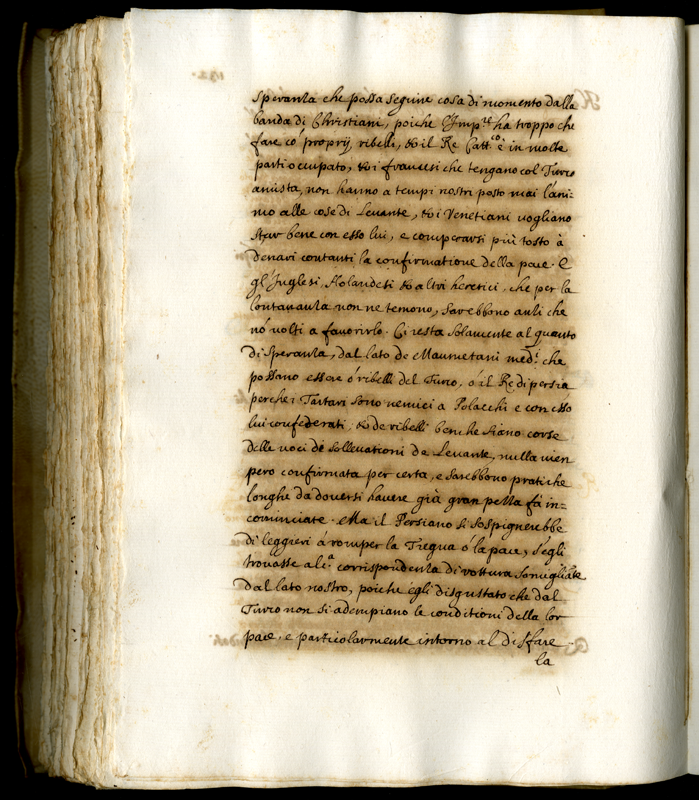 speranza che possa seguire cosa di momento dalla
banda di Christiani, poiche l'Imp.re ha troppo che
fare co' proprij ribelli, et il Re Catt.co è in molte
parti occupato, et i francesi che tengano col Turco
amista, non hanno a tempi nostri posto mai l'ani=
mo alle cose di Levante, et i Venetiani vogliano
star bene con esso lui, e comperarsi più tosto à
denari contanti la confirmatione della pace. E
gl'Inglesi, Holandesi et altri heretici, che per la
lontananza non ne temono, sarebbono anzi che
nó volti a favorirlo. Ci resta solamente al quanto
di speranza, dal lato de Maumetani med.i che
possano essere ó ribelli del Turco, ó il Re di persia
perche i Tartari sono nemici a Polacchi e con esso
lui confederati, et de ribelli benche siano corse
delle voci di sollevationi da Levante, nulla vien
pero confirmata per certa, e sarebbono pratiche
longhe da doversi havere già gran pezza fà in=
cominciate. Ma il Persiano si sospignerebbe
di leggieri á romper la Tregua ó la pace, s'egli
trovasse al.a corrispondenza di vottura somigliāte
dal lato nostro, poiche egli disgustato che dal
Turco non si adempiano le conditioni della lor
pace, e particolarmente intorno al disfare
la